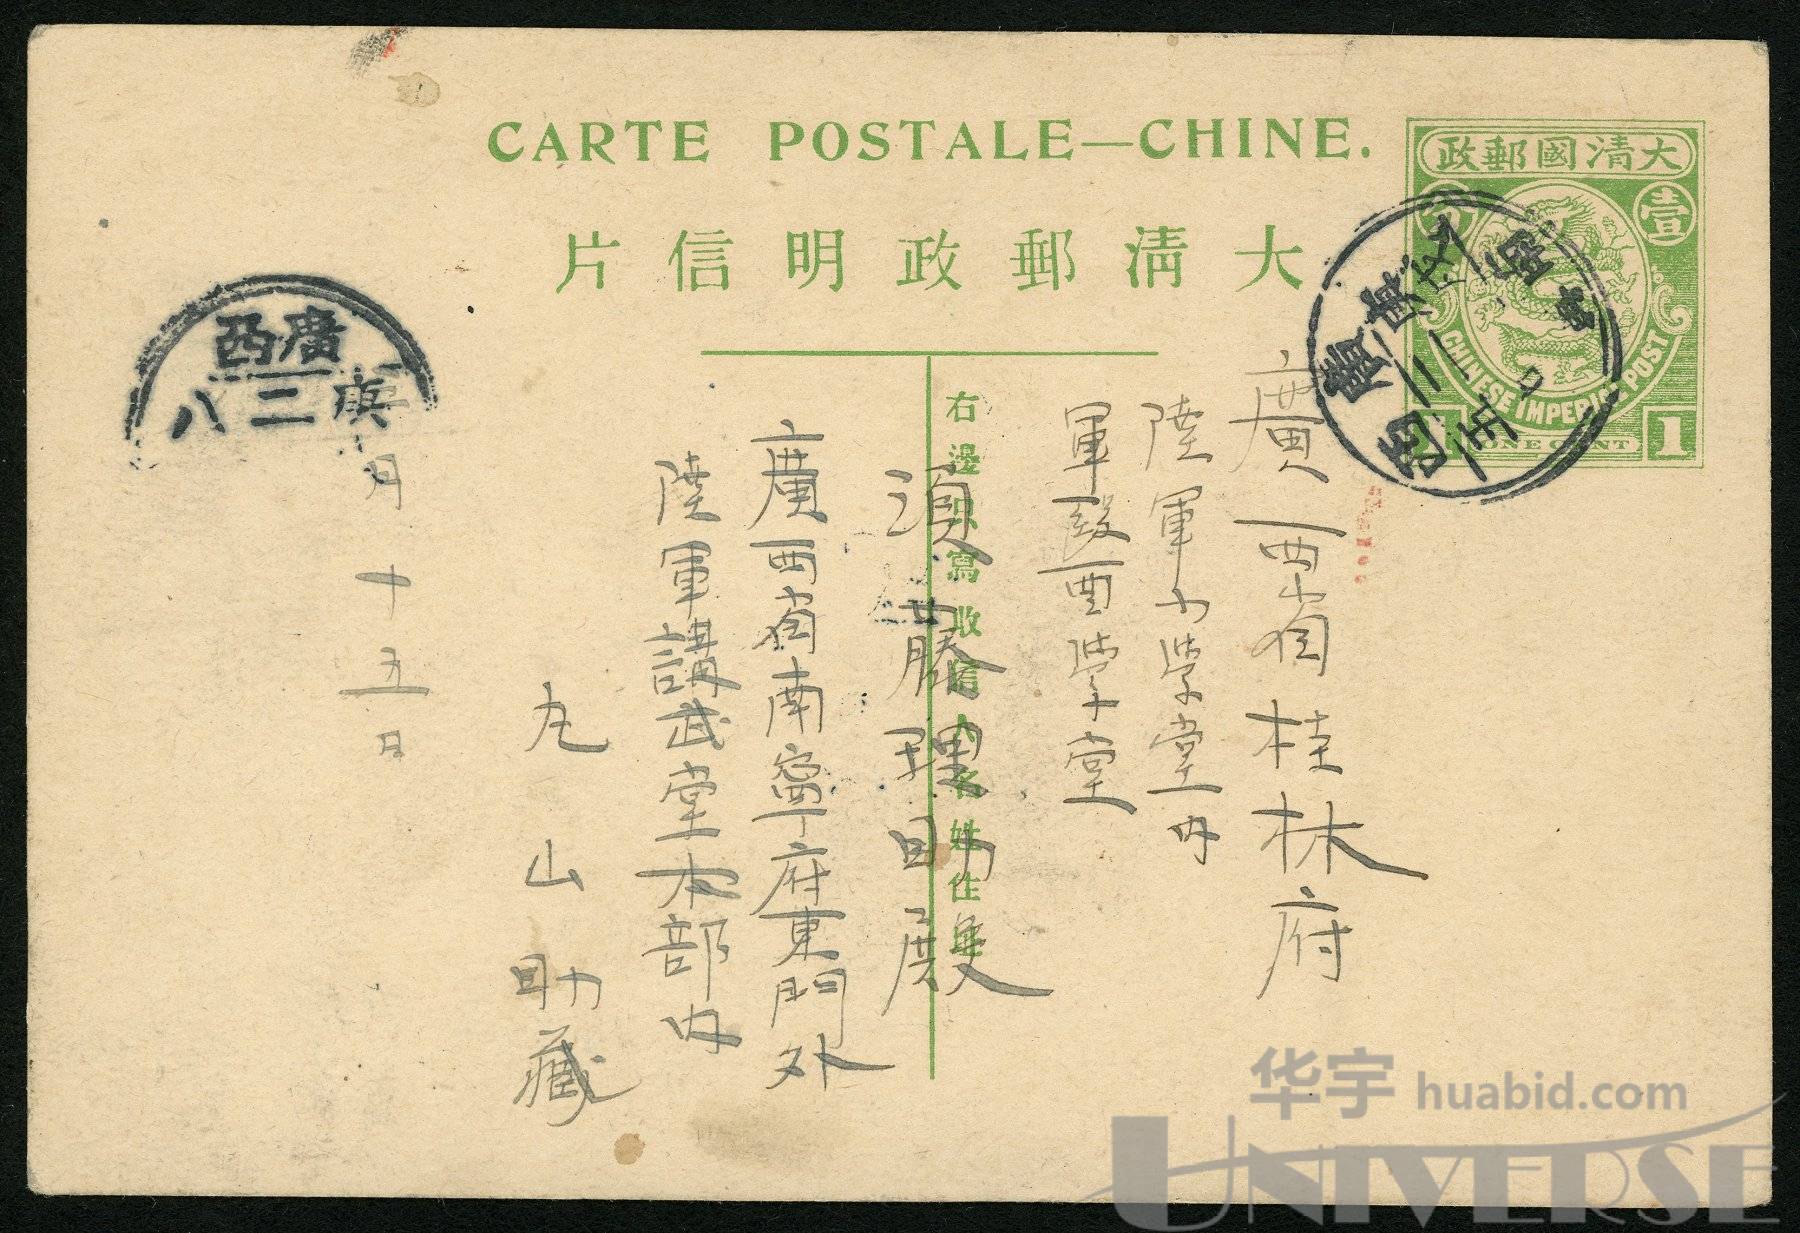 CARTE POSTALE—CHINE.
大清郵政明信片
大清國郵政
壹
分
CHINESE IMPERIAL POST
1
ONE CENT
廣西
庚
二八
廣西省桂林府
陸軍小学堂内
軍毉西学堂
須藤理助殿
廣西省南寧府東門外
陸軍講武堂本部内
丸山助藏
一月十五日
右邊只寫收信人名姓住
华宇 huabid.com
UNIVERSE